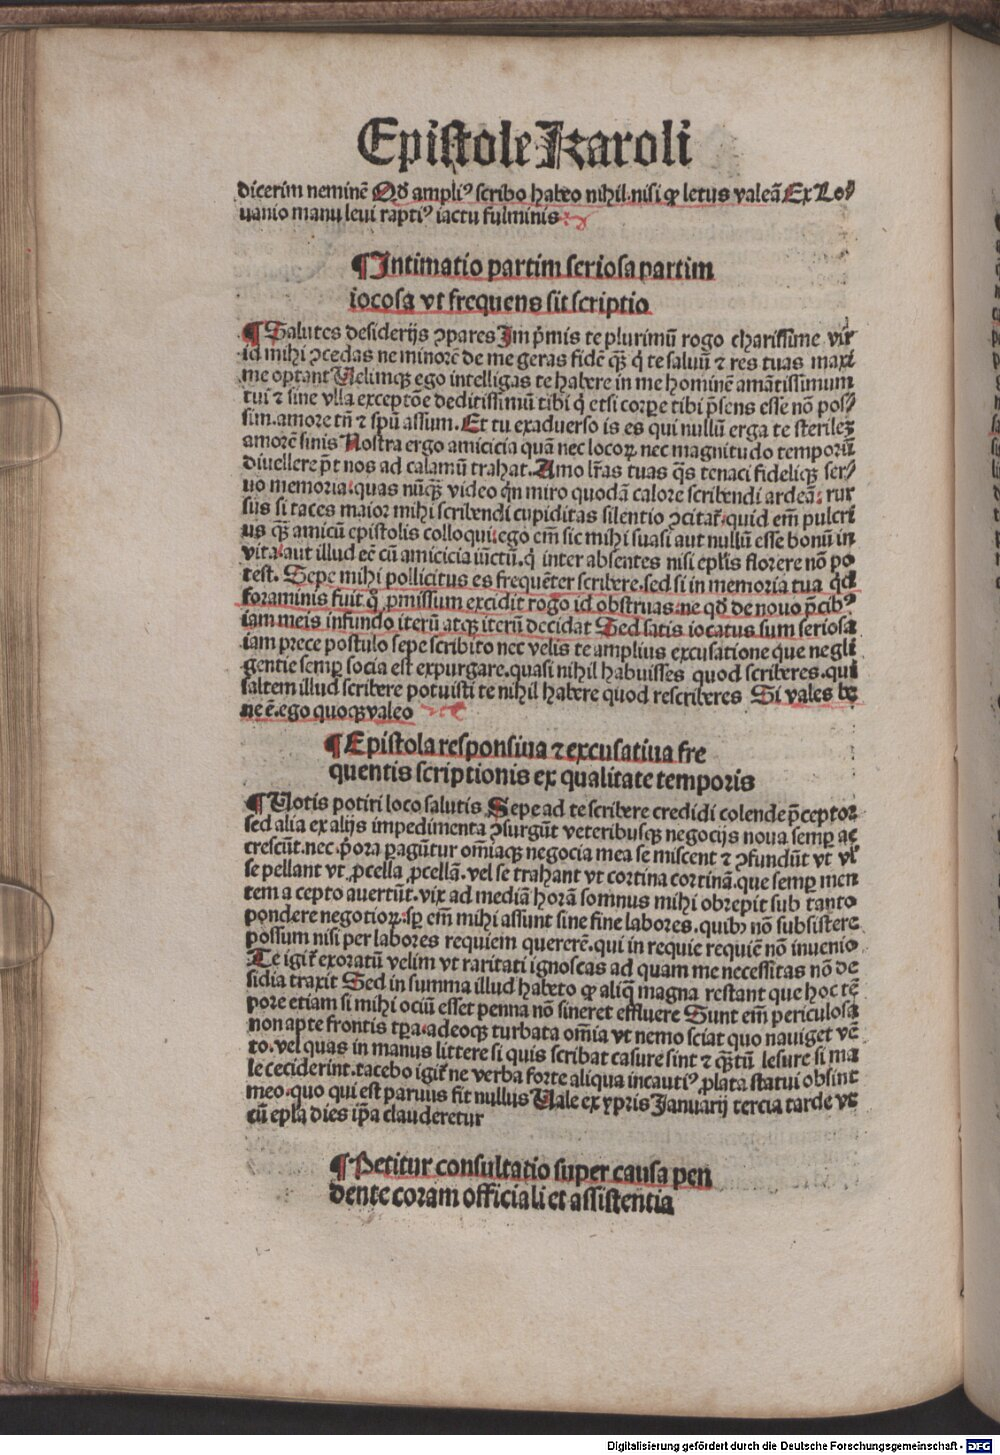 Epistole Karoli
dicerim neminē Qđ ampliꝰ scribo habeo nihil·nisi ꝙ letus valeā Ex Lo⸗
uanio manu leui raptiꝰ iactu fulminis
¶Intimatio partim seriosa partim
iocosa vt frequens sit scriptio
¶Salutes desiderijs ↄpares Im p̄mis te plurimū rogo charissime vir
id mihi ↄcedas ne minorē de me geras fidē qͣꝫ q̄ te saluū ⁊ res tuas maxi
me optant Uelimqꝫ ego intelligas te habere in me hominē amātissimum
tui ⁊ sine vlla exceptōe deditissimū tibi q̄ etsi corpꝑe tibi p̄sens esse nō pos⸗
sim·amore tn̄ ⁊ spū assum. Et tu exaduerso is es qui nullū erga te sterilez
amorē sinis Nostra ergo amicicia quā nec locoꝝ nec magnitudo temporū
diuellere p̄t nos ad calamū trahat. Amo lr̄as tuas qͣs tenaci fideliqꝫ ser⸗
uo memoria·quas nūqͣꝫ video qn̄ miro quodā calore scribendi ardeā: rur
sus si taces maior mihi scribendi cupiditas silentio ↄcitat̄·quid em̄ pulcri
us qͣꝫ amicū epistolis colloqui·ego em̄ sic mihi suasi aut nullū esse bonū in
vita·aut illud eē cū amicicia iūctū·q̄ inter absentes nisi epl̄is florere nō po
test. Sepe mihi pollicitus es frequēter scribere·sed si in memoria tua qd
foraminis fuit qͦ ꝓmissum excidit rogo id obstruas·ne qđ de nouo p̄cibꝰ
iam meis infundo iterū atqꝫ iterū decidat Sed satis iocatus sum seriosa
iam prece postulo sepe scribito nec velis te amplius excusatione que negli
gentie semꝑ socia est expurgare·quasi nihil habuisses quod scriberes·qui
saltem illud scribere potuisti te nihil habere quod rescriberes Si vales be
ne ē·ego quoqꝫ valeo
¶Epistola responsiua ⁊ excusatiua fre
quentis scriptionis ex qualitate temporis
¶Uotis potiri loco salutis Sepe ad te scribere credidi colende p̄ceptor
sed alia ex alijs impedimenta ↄsurgūt veteribusqꝫ negocijs noua semꝑ ac
crescūt·nec p̄ora ꝑagūtur om̄iaqꝫ negocia mea se miscent ⁊ ↄfundūt vt vl̓
se pellant vt ꝓcella ꝓcellā·vel se trahant vt cortina cortinā·que semꝑ men
tem a cepto auertūt·vix ad mediā horā somnus mihi obrepit sub tanto
pondere negotioꝝ·sꝑ em̄ mihi assunt sine fine labores·quibꝫ nō subsistere
possum nisi per labores requiem quererē·qui in requie requiē nō inuenio
Te igit̄ exoratū velim vt raritati ignoscas ad quam me necessitas nō de
sidia traxit Sed in summa illud habeto ꝙ aliq̄ magna restant que hoc tē
pore etiam si mihi ociū esset penna nō sineret effluere Sunt em̄ periculosa
non apte frontis tꝑa·adeoqꝫ turbata om̄ia vt nemo sciat quo nauiget vē
to·vel quas in manus littere si quis scribat casure sint ⁊ qͣꝫtū lesure si ma
le ceciderint·tacebo igit̄ ne verba forte aliqua incautiꝰ ꝓlata statui obsint
meo·quo qui est paruus fit nullus Uale ex xp̄ris Januarij tercia tarde vt
cū epl̄a dies ip̄a clauderetur
¶Petitur consultatio super causa pen
dente coram officiali et assistentia
Digitalisierung gefördert durch die Deutsche Forschungsgemeinschaft - DFG